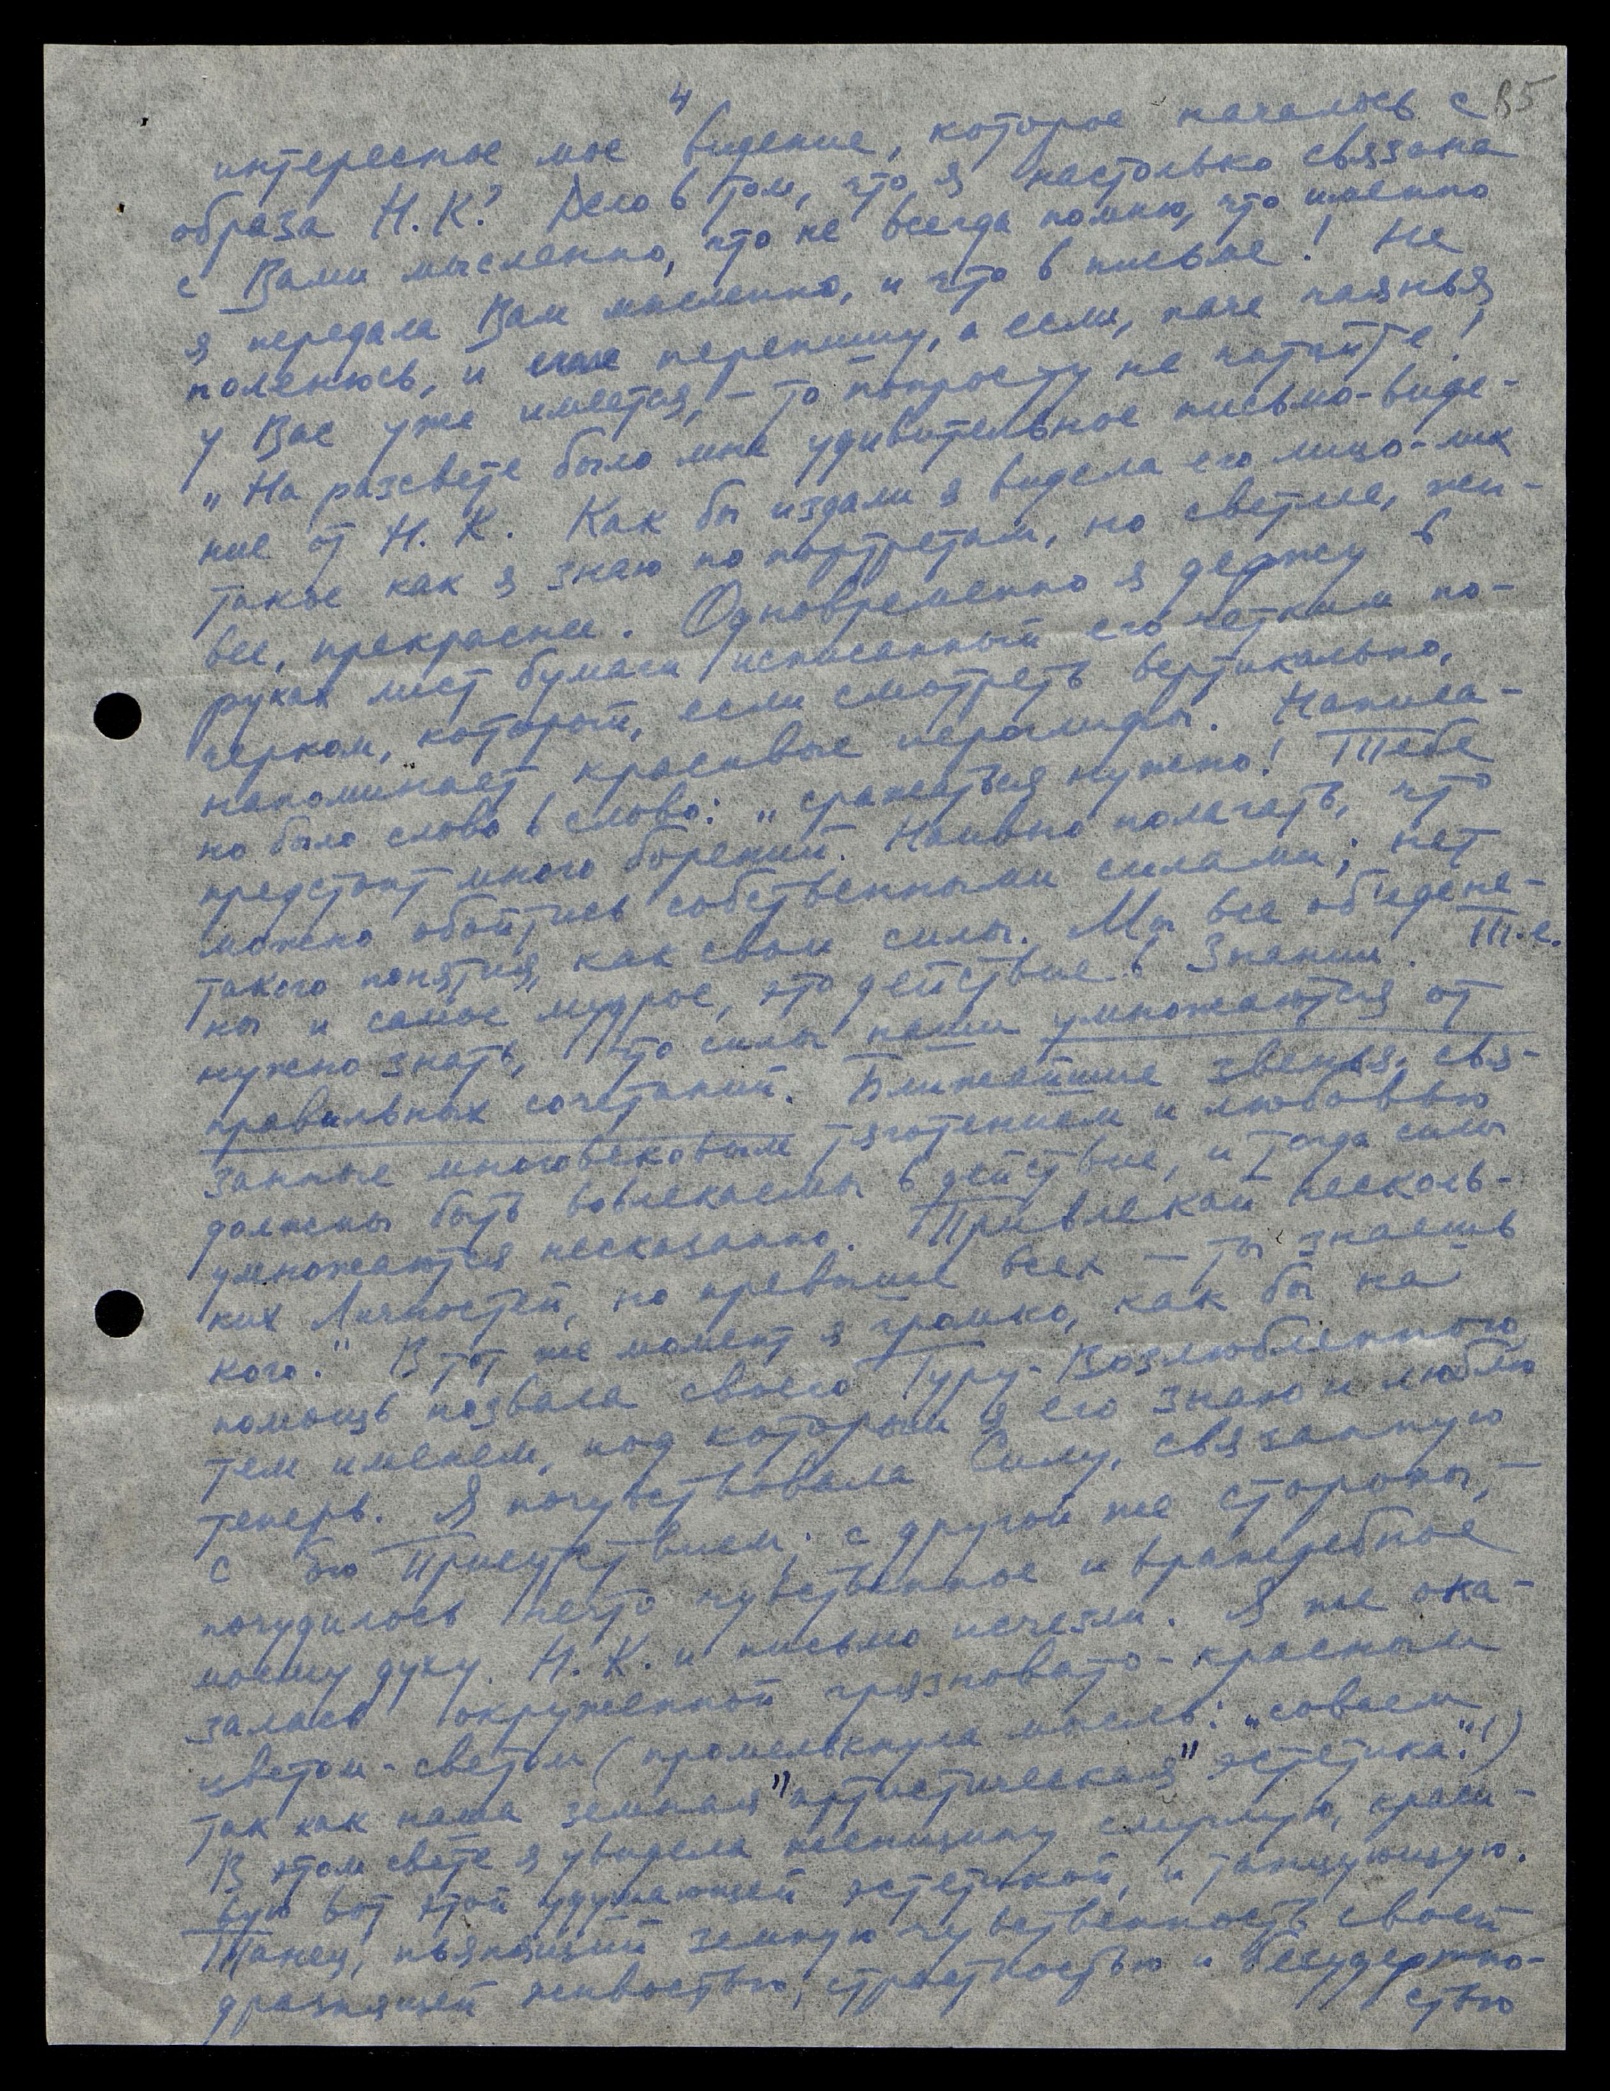 4
B5
интересное мое видение, которое началось с
образа Н.К.? Дело в том, что я настолько связана
с Вами мысленно, что не всегда помню, что именно
я передала Вам мысленно, и что в письме! Не
поленюсь, и еще перепишу, а если, паче чаянья,
у Вас уже имеется, – то попросту не читайте!
„На разсвете было мне удивительное письмо-виде-
ние от Н.К. Как бы издали я видела его лицо-лик
такое как я знаю по портретам, но светлее, жи-
вее, прекраснее. Одновременно я держу в
руках лист бумаги исписанный его четким по-
черком, который, если смотреть вертикально,
напоминает красивые иероглифы. Написа-
но было слово в слово: „сражаться нужно! Тебе
предстоит много борений. Наивно полагать, что
можно обойтись собственными силами; нет
такого понятия, как свои силы. Мы все объедене-
ны и самое мудрое, это действие в Знании. Т.е.
нужно знать, что силы наши умножаются от
правильных сочетаний. Ближайшие звенья, свя-
занные многовековым тяготением и любовью
должны быть вовлекаемы в действие, и тогда силы
умножаются несказанно. Привлекай несколь-
ких Личностей, но превыше всех – ты знаешь
кого." В тот же момент я громко, как бы на
помощь позвала своего Гуру-Возлюбленного,
тем именем, под которым я его знаю и люблю
теперь. Я почувствовала Силу, связанную
с Его Присутствием; с другой же стороны, –
почудилось нечто чувственное и враждебное
моему духу. Н.К. и письмо исчезли. Я же ока-
залась окруженной грязновато-красным
цветом-светом (промелькнула мысль: „совсем
так как наша земная "артистическая" эстетика."!)
В этом свете я увидела женщину смуглую, краси-
вую вот этой удушающей эстетикой, и танцующую.
Танец, пьянящий земную чувственность своей
дразнящей живостью, страстностью и безудержно-
стью